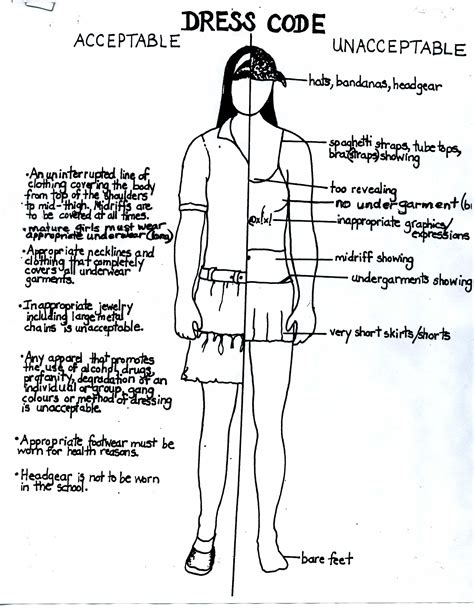 DRESS CODE
ACCEPTABLE
UNACCEPTABLE
hats, bandanas, headgear
spaghetti straps, tube tops,
bra(straps) showing
too revealing
no undergarment
inappropriate graphics/
expressions
@x!x!
midriff showing
undergarments showing
very short skirts/shorts
bare feet
•An uninterrupted line of
clothing covering the body
from top of the shoulders
to mid-thigh. Midriffs are
to be covered at all times.
•mature girls must wear
appropriate underwear
•Appropriate necklines and
clothing that completely
covers all underwear
garments.
•Inappropriate jewelry
including large metal
chains is unacceptable.
•Any apparel that promotes
the use of alcohol, drugs,
profanity, degradation of an
individual or group, gang
colours or method of dressing
is unacceptable.
•Appropriate footwear must be
worn for health reasons.
•Headgear is not to be worn
in the school.